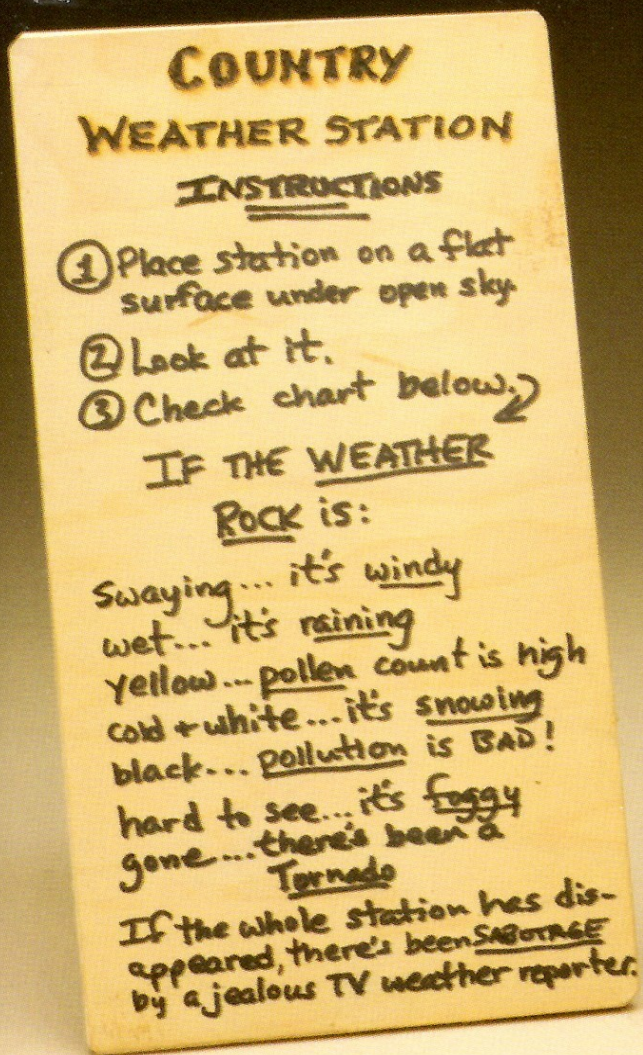 COUNTRY
WEATHER STATION
INSTRUCTIONS
① Place station on a flat
surface under open sky.
② Look at it.
③ Check chart below.
IF THE WEATHER
ROCK is:
Swaying... it's windy
wet... it's raining
yellow... pollen count is high
cold + white... it's snowing
black... pollution is BAD!
hard to see... it's foggy
gone... there's been a
Tornado
If the whole station has dis-
appeared, there's been SABOTAGE
by a jealous TV weather reporter.